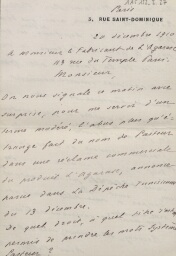 Paris
3, RUE SAINT-DOMINIQUE
20 décembre 1910
à Monsieur le Fabricant d'Agarase
13 rue du Temple Paris.
Monsieur,
On nous signale ce matin avec
surprise, pour me servir d'une
forme modérée, l'abus
étrange fait du nom de Pasteur
dans une réclame commerciale
du produit d'Agarase, annonce
parue dans La Dépêche Tunisienne
du 13 décembre.
De quel droit, à quel titre vous
de prendre les mots Système
Pasteur ?